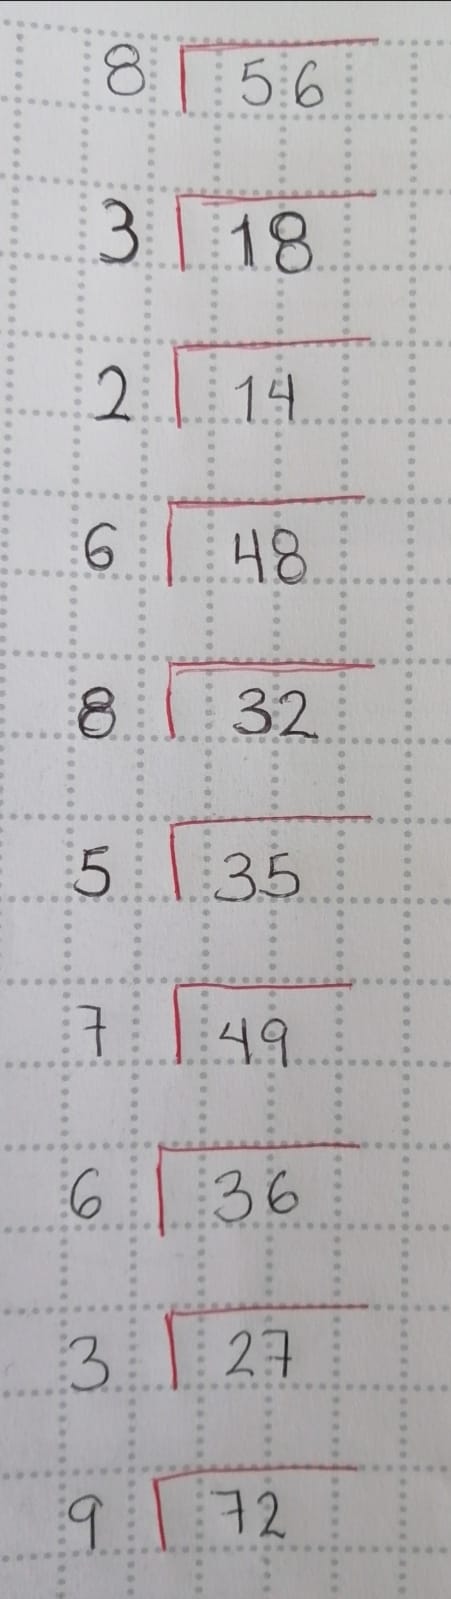 8 56
3 18
2 14
6 48
8 32
5 35
7 49
6 36
3 27
9 72